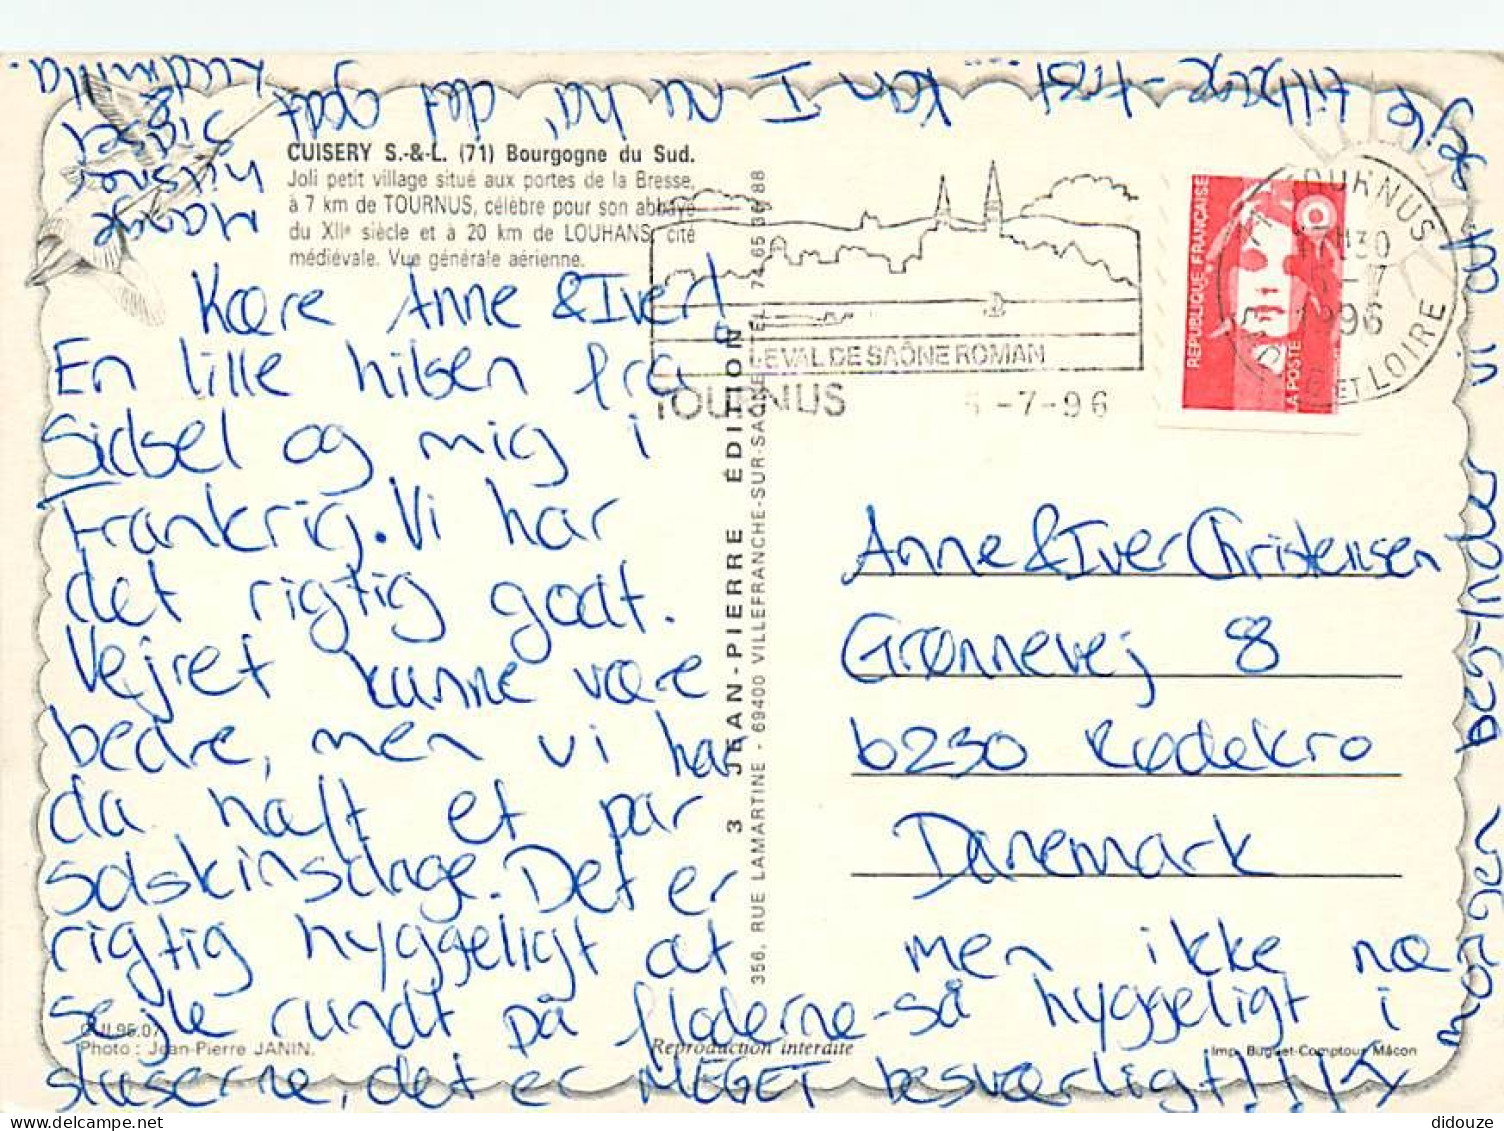 CUISERY S.-&-L. (71) Bourgogne du Sud.
Joli petit village situé aux portes de la Bresse,
à 7 km de TOURNUS, célèbre pour son abbaye
du XIIe siècle et à 20 km de LOUHANS, cité
médiévale. Vue générale aérienne.
Kære Anne & Iver!
En lille hilsen fra
Sidsel og mig i
Frankrig. Vi har
det rigtig godt.
Vejret kunne være
bedre, men vi har
da haft et par
solskinsdage. Det er
rigtig hyggeligt at
sejle rundt på floderne - så hyggeligt i
sluserne, det er MEGET besværligt!!!!
men ikke næ
sejle tilbage - trist
Kan I nu ha' det godt
Mange
hilsner
Sidsel
&
Ludmilla.
Anne & Iver Christensen
Grønnevej 8
6230 Rødekro
Danemark
3 JEAN-PIERRE ÉDITION
356, RUE LAMARTINE - 69400 VILLEFRANCHE-SUR-SAÔNE
LE VAL DE SAÔNE ROMAN
TOURNUS
-7-96
REPUBLIQUE FRANÇAISE
LA POSTE
TOURNUS
1996
ET LOIRE
Photo : Jean-Pierre JANIN.
Reproduction interdite
Imp. Buguet-Comptour Mâcon
didouze